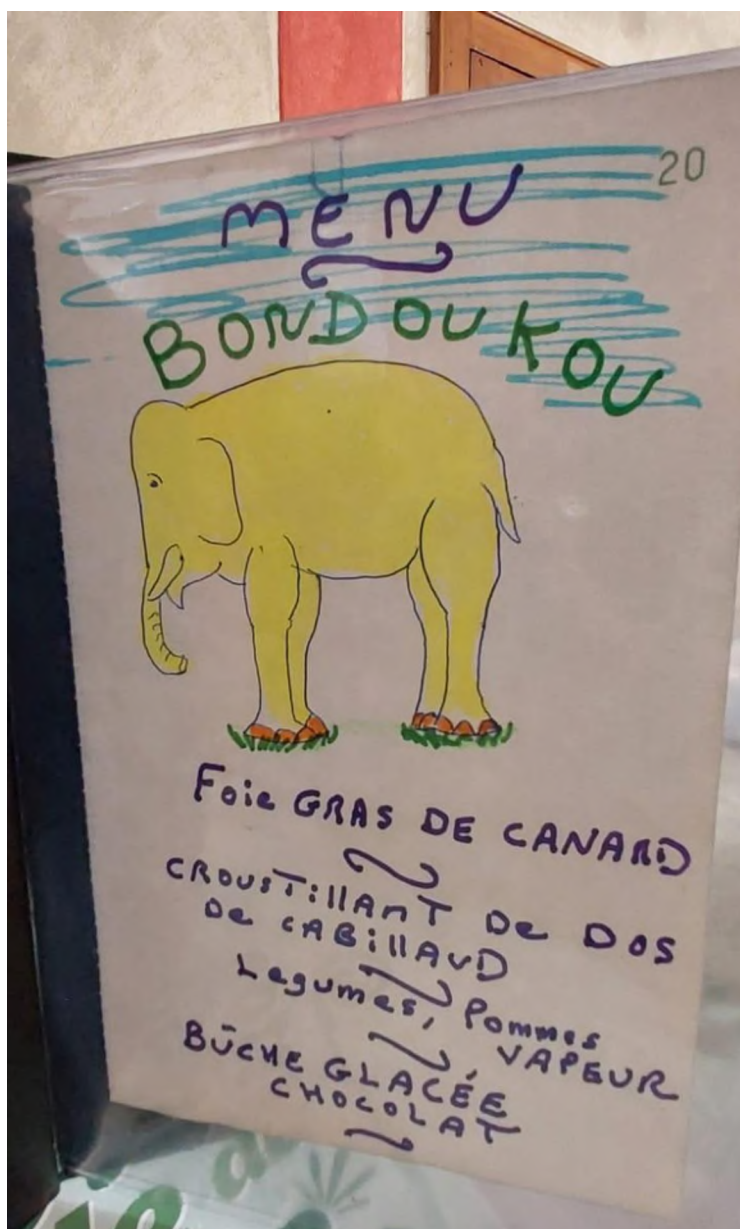 20
MENU
BONDOUKOU
Foie GRAS DE CANARD
CROUSTillAnT De DOS
De CABillAUD
Legumes, Pommes
VAPEUR
BÛCHE GLACÉE
CHOCOLAT